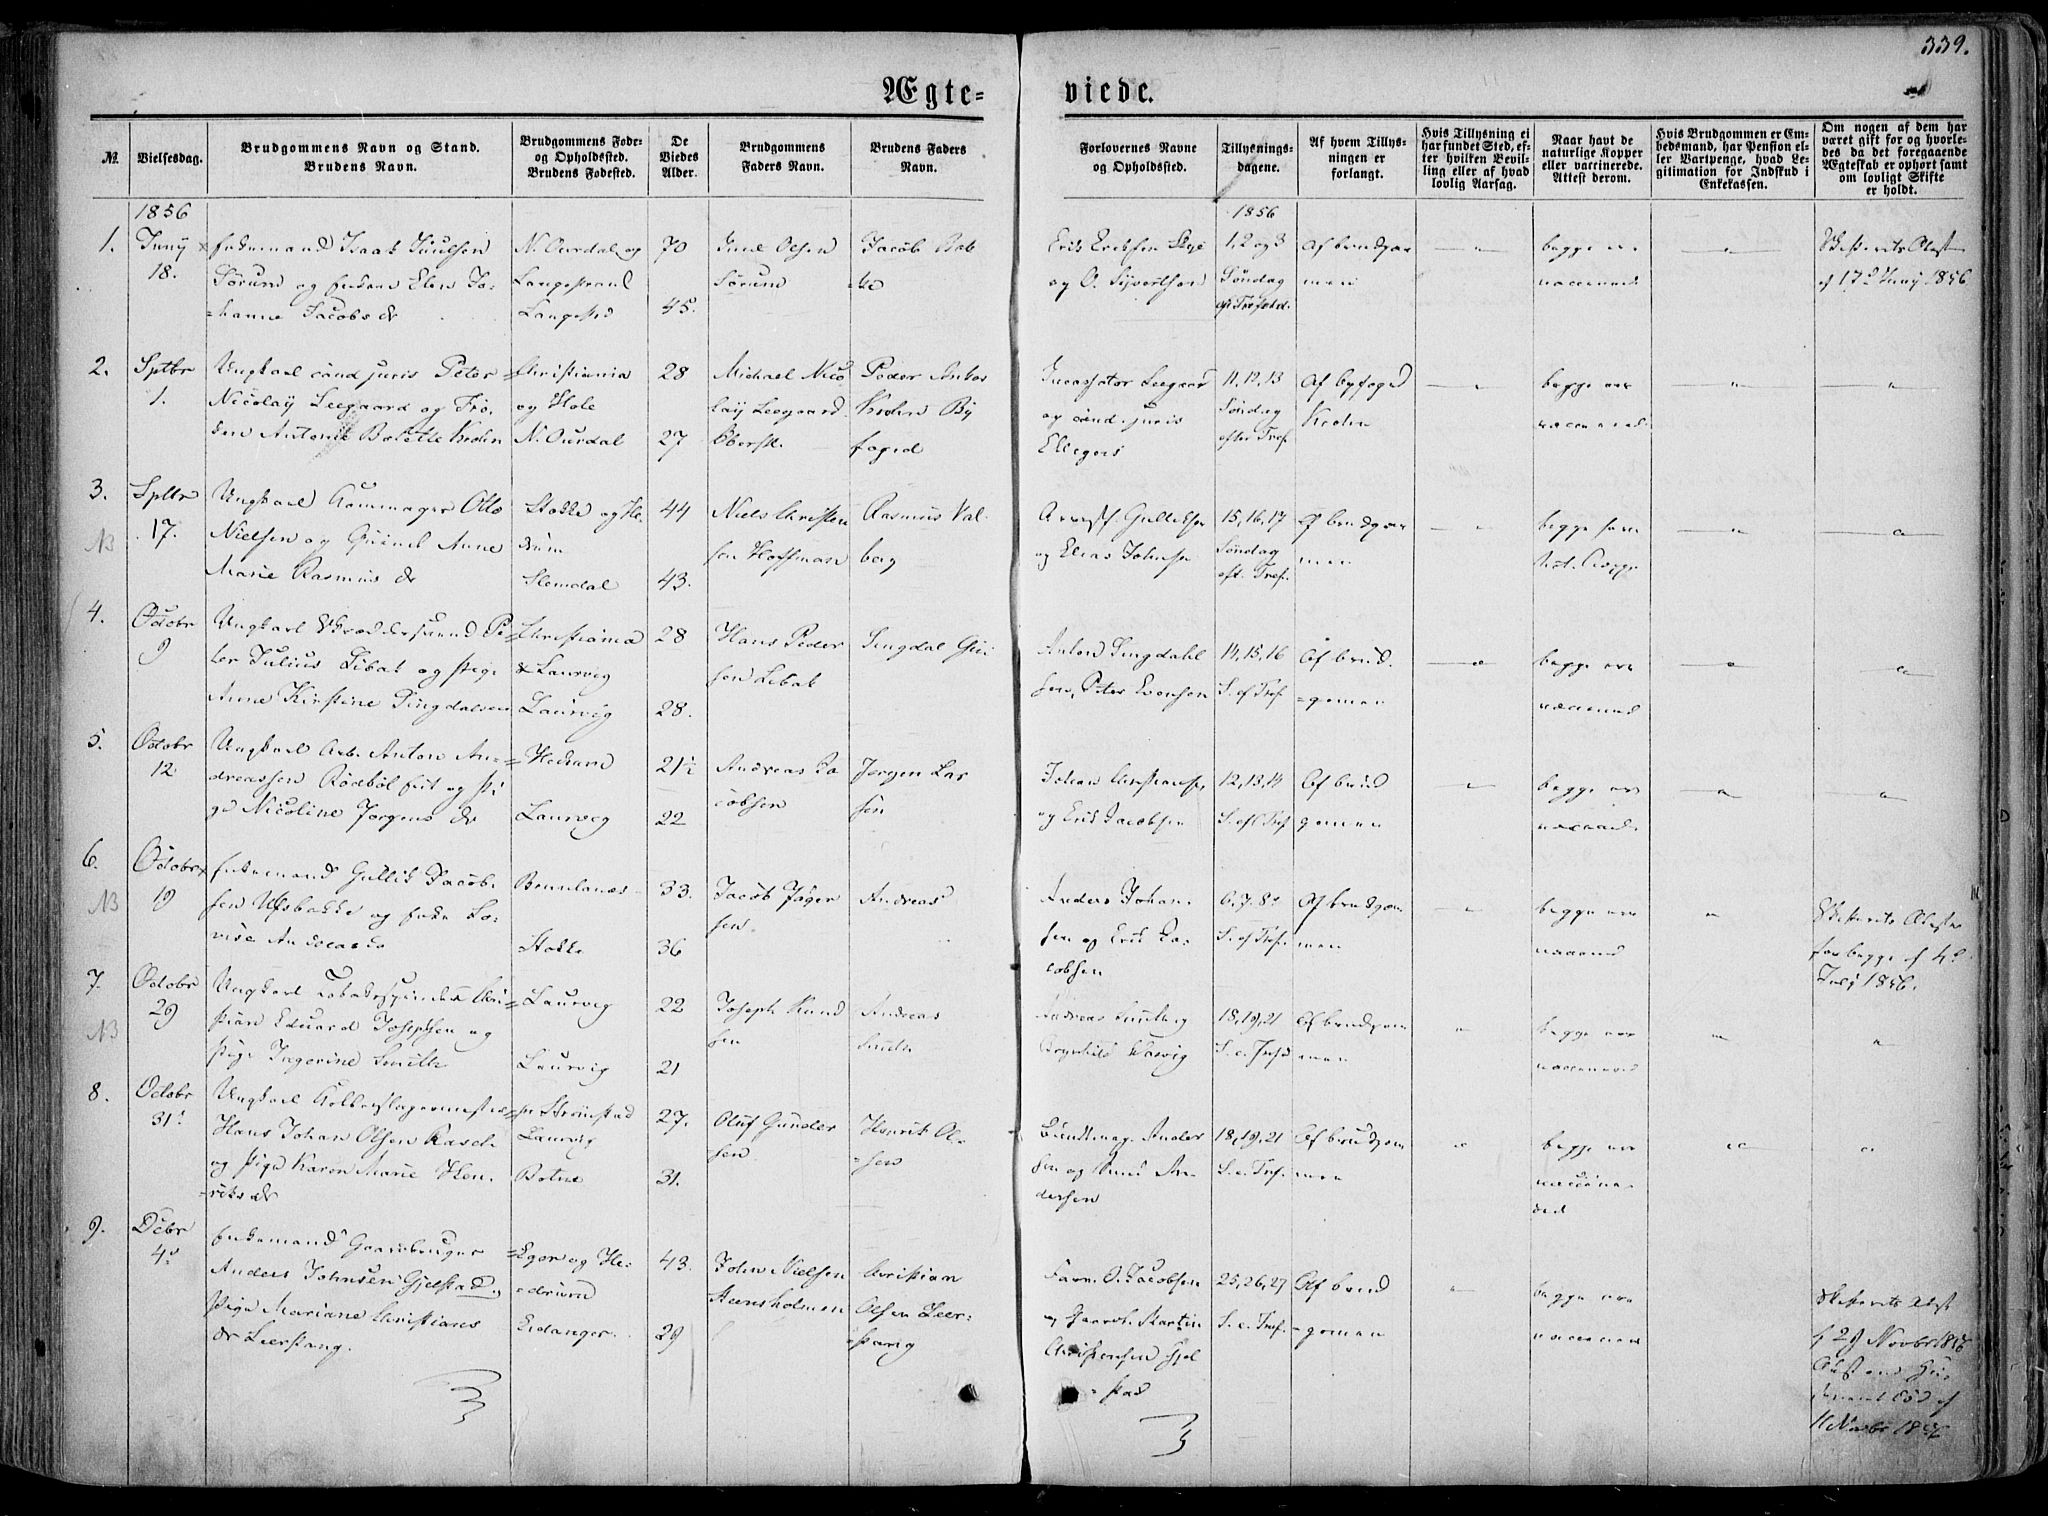 339.
Ægte-
viede.
№
Vielsesdag.
Brudgommens Navn og Stand.
Brudens Navn.
Brudgommens Føde-
og Opholdssted.
Brudens Fødested.
De
Viedes
Alder.
Brudgommens
Faders Navn.
Brudens Faders
Navn.
Forlovernes Navne
og Opholdssted.
Tillysnings-
dagene.
Af hvem Tillys-
ningen er
forlangt.
Hvis Tillysning ei
har fundet Sted, ef-
ter hvilken Bevil-
ling eller af hvad
lovlig Aarsag.
Naar havt de
naturlige Kopper
eller vaccinerede.
Attest derom.
Hvis Brudgommen er Em-
bedsmand, har Pension el-
ler Vartpenge, hvad Le-
gitimation for Indskud i
Enkekassen.
Om nogen af dem har
været gift før og hvorle-
des da det foregaaende
Ægteskab er ophørt samt
om lovligt Skifte
er holdt.
1856
1.
Juny
18.
Enkemand Isaak Juulsen
Sørum og Enken Elen Jo-
hanne Jacobsdr
N. Ourdal og
Langestrand
Langestrd
70
45.
Juul Olsen
Sørum
Jacob
1856
Erik Eriksen
og O. Syvertsen
1, 2 og 3
Søndag
Af brudgom
men
begge ere
vaccinered
Skifterets Attest
af 17d Juny 1856
2.
Sptbr
1.
Ungkarl cand juris Peter
Nicolay Leegaard og Frø-
ken Antonie Bolette Krohn
Christiania
og Hole
N. Ourdal
28
27
Michael Nico
lay Leegaard
Oberstl.
Peder Anker
Krohn By
foged
Leegaard
og cand. juris
Ellegers
11, 12, 13
Søndag
efter Tref.
Af byfoged
Krohn
begge ere
vaccinered
3.
Sptbr
17.
NB
Ungkarl Otto
Nielsen og Anne
Marie Rasmusdr
Stokke og He-
drum
Slemdal
44
43.
Niels Christen
sen Hoffman
Rasmus Val-
berg
Gulliksen
og Elias Johnsen
15, 16, 17
Søndag
eft. Tref.
Af brudgom
men
begge have
4.
Octobr
9
Ungkarl Skræddersvend Pe-
ter Julius Libak og Pige
Anne Kirstine Singdalsen
Christiania
& Laurvig
Laurvig
28
28.
Hans Peder
sen Libak
Singdal
Anton Singdahl
sen, Peter Evensen
14, 15, 16
S. ef Tref.
Af brud-
gomen
begge ere
vaccinered
5.
Octobr
12
Ungkarl Arb. Anton An-
dreassen Rødbøl og Pi
ge Nicoline Jørgensdr
Hedrum
Laurvig
21½
22
Andreas Ja
cobsen
Jørgen Lar
sen
Johan Christiansen
og Erik Jacobsen
12, 13, 14
S. eft Tref
Af brud
gomen
begge ere
vaccinerede
6.
Octobr
19
NB
Enkemand Gullik Jacob-
sen Ulfsbakke og Enke Lo-
vise Andreasdr
Brunlanæs
Stokke
33.
36
Jacob Jäger
sen
Andreas
Anders Johan-
sen og Erik Ja-
cobsen
6, 7, 8d
S. ef Tref.
Af brudgom
men
begge ere
vaccinered
Skifterets Attester
for begge af 4d
July 1856.
7.
Octobr
29
NB
Ungkarl Tobaksspinder Chri-
stian Eduard Josephsen og
Pige Ingerine Smith
Laurvig
Laurvig
22
21
Joseph Knud
sen
Andreas
Smith
Andreas Smith og
18, 19, 21
S. e. Tref
Af brudgom
men
begge ere
vaccinered
8.
Octobr
31d
Ungkarl Kobberslagermester
Hans Johan Olsen Rasch
og Pige Karen Marie Hen-
riksdr
Strömstad
Laurvig
Botne
27.
31.
Oluf Gunder
sen
Henrik Ol-
sen
Buntmag. Ander
sen og Knud An-
dersen
18, 19, 21
S. e. Tref.
Af brudgom
men
begge ere
vaccine-
red
9.
Debr
4d
Enkemand Gaardbruger
Anders Johnsen Gjelstad og
Pige Mariane Christians
dr Leerstang.
Eger og He-
drum
Eidanger
43.
29
John Nielsen
Steensholmen
Christian
Olsen Leer-
stang
O. Jacobsen
og Gaardb. Martin
Christensen Gjel
stad
25, 26, 27
S. e. Tref.
Af brud
gomen
begge ere
vaccinered
Skifterets Attest
af 29 Novbr 1856
11 Novbr 1856